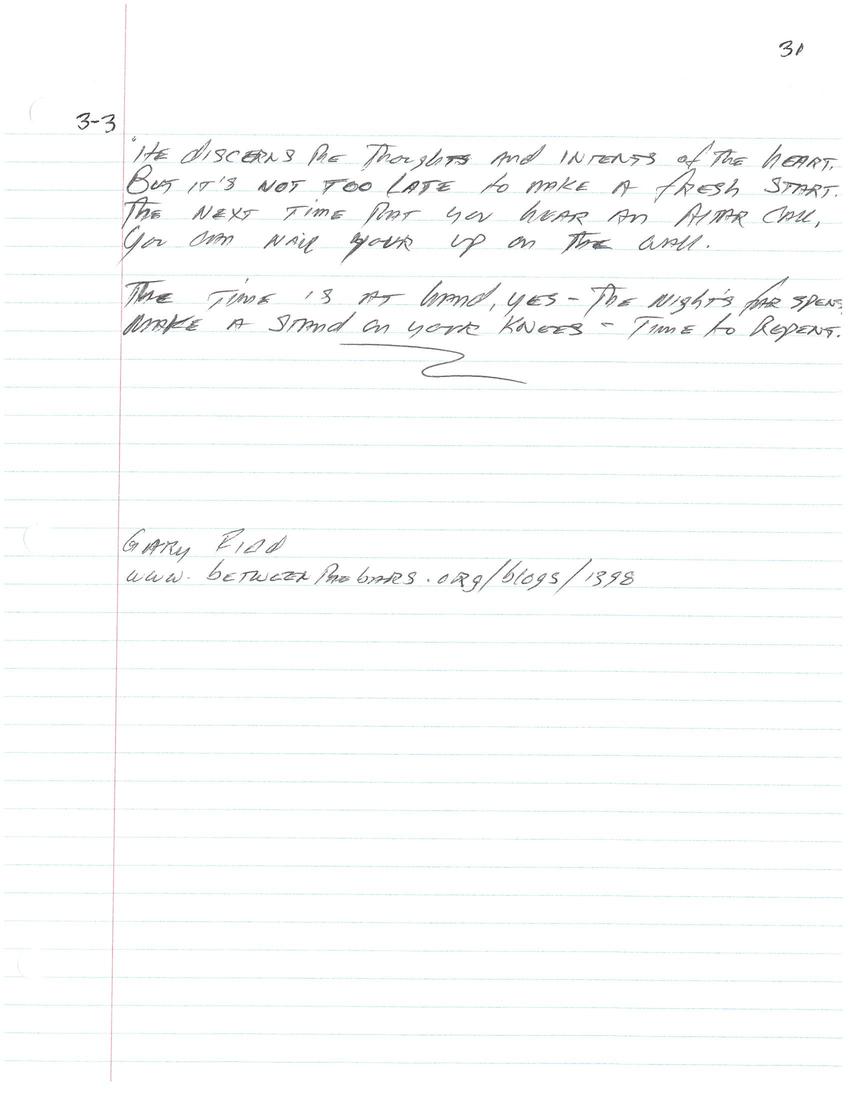 31
3-3
"He discerns the thoughts and intents of the heart.
But it's not too late to make a fresh start.
The next time that you hear an altar call,
You can nail your up on the wall.
The time is at hand, yes - the night's far spent,
Make a stand on your knees - Time to Repent.
Gary Fidd
www.betweenthebars.org/blogs/1398